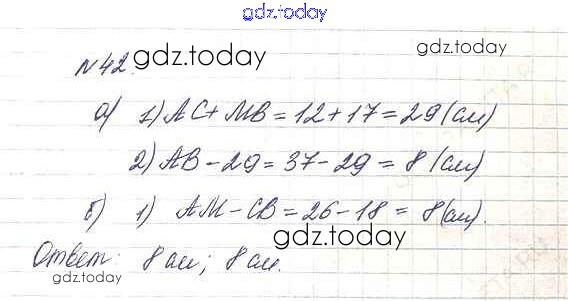 gdz.today
№42. gdz.today gdz.today
а) 1) AC + MB = 12 + 17 = 29 (см)
2) AB - 29 = 37 - 29 = 8 (см)
б) 1) AM - CB = 26 - 18 = 8 (см).
gdz.today
Ответ: 8 см; 8 см.
gdz.today